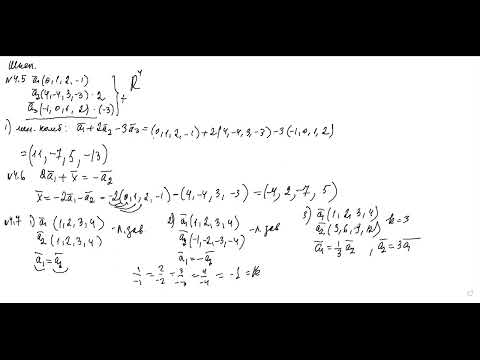 Шкіл.
№4.5 a̅₁(0, 1, 2, -1)
a̅₂(4, -4, 3, -3) · 2
a̅₃(-1, 0, 1, 2) · (-3)
+ R⁴
1) лін. комб: a̅₁ + 2a̅₂ - 3a̅₃ = (0, 1, 2, -1) + 2(4, -4, 3, -3) - 3(-1, 0, 1, 2)
= (11, -7, 5, -13)
№4.6 2a̅₁ + x̅ = -a̅₂
x̅ = -2a̅₁ - a̅₂ = -2(0, 1, 2, -1) - (4, -4, 3, -3) = (-4, 2, -7, 5)
№4.7 1) a̅₁(1, 2, 3, 4) - л. зав
a̅₂(1, 2, 3, 4)
a̅₁ = a̅₂
2) a̅₁(1, 2, 3, 4) - л. зав
a̅₂(-1, -2, -3, -4)
a̅₁ = -a̅₂
1/-1 = 2/-2 = 3/-3 = 4/-4 = -1 = k
3) a̅₁(1, 2, 3, 4) k = 3
a̅₂(3, 6, 9, 12)
a̅₁ = 1/3 a̅₂ , a̅₂ = 3a̅₁